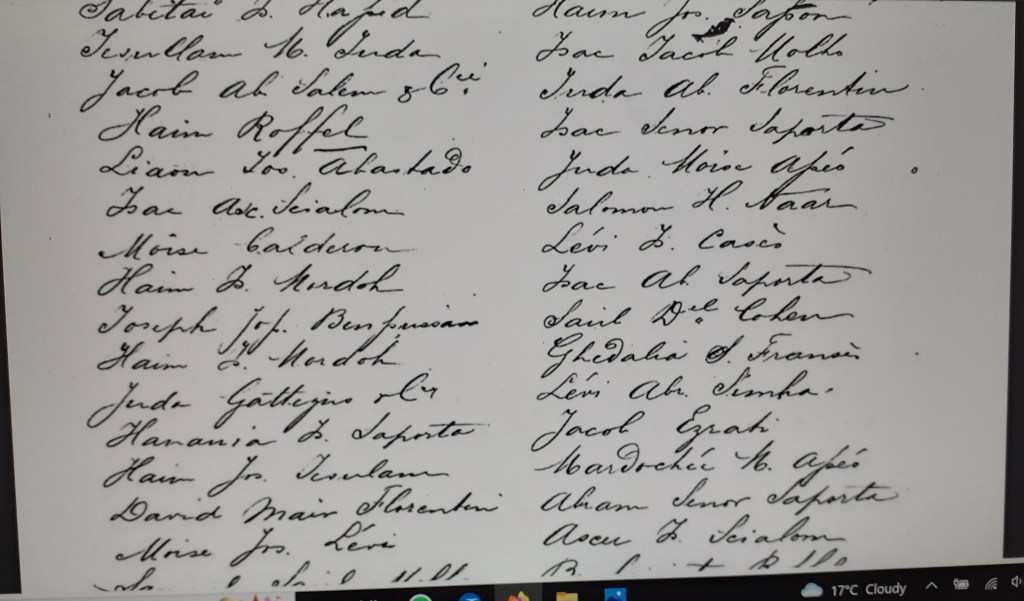 Sabetai I. Hassid
Jesullam M. Juda
Jacob Ab. Salem & Cie
Haim Roffel
Liaou Jos. Abastado
Isac Asc. Scialom
Moïse Calderon
Haim I. Mordoh
Joseph Jos.
Haim I. Mordoh
Juda Gattegno & Cie
Hanania I. Saporta
Haim Jos. Jesulam
David Mair Florentin
Moïse Jos. Lévi
Haim Jos. Sasson
Isac Jacob Molho
Juda Ab. Florentin
Isac Senor Saporta
Juda Moïse Apéo
Salomon H. Naar
Lévi I. Casès
Isac Ab. Saporta
Saül Del. Cohen
Ghedalia S. Fransès
Lévi Abr. Simha
Jacob Ezrati
Mardochée M. Apéo
Abram Senor Saporta
Ascer I. Scialom
17°C Cloudy